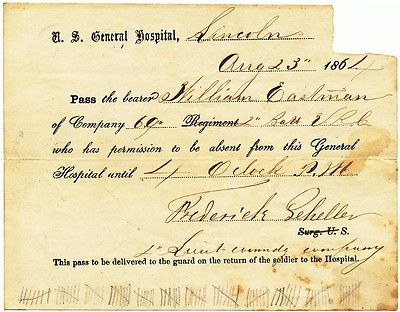 U. S. General Hospital, Lincoln
Aug 23" 1864
Pass the bearer William Eastman
of Company 69" Regiment 2" Batt V R C
who has permission to be absent from this General
Hospital until 4 Oclock P.M
Frederick Scheller
Surg. U. S.
1" Lieut comndg company
This pass to be delivered to the guard on the return of the soldier to the Hospital.